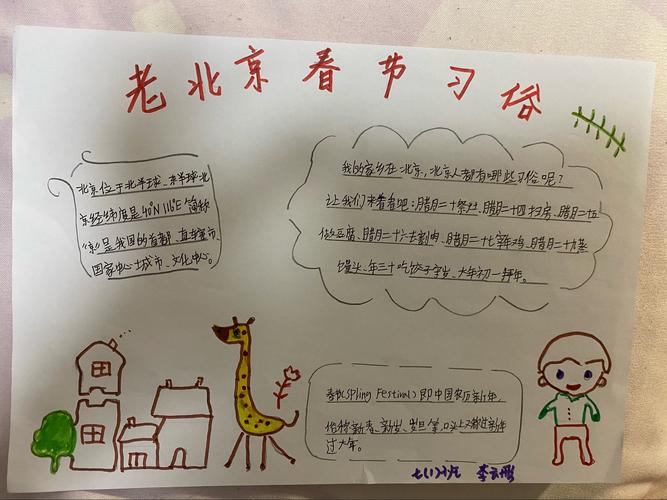 老北京春节习俗
北京位于北半球、东半球、北
京经纬度是40°N 116°E 简称
《京》是我国的首都、直辖市、
国家中心城市、文化中心。
我的家乡在北京，北京人都有哪些习俗呢？
让我们来看看吧：腊月二十祭灶、腊月二十四扫房、腊月二五
做豆腐、腊月二十六去割肉、腊月二十七宰鸡、腊月二十九蒸
馒头、年三十吃饺子守岁、大年初一拜年。
春节(Spling Festival)即中国农历新年，
俗称新春、新岁、岁旦等，口头上又称过新年
过大年。
七(1)